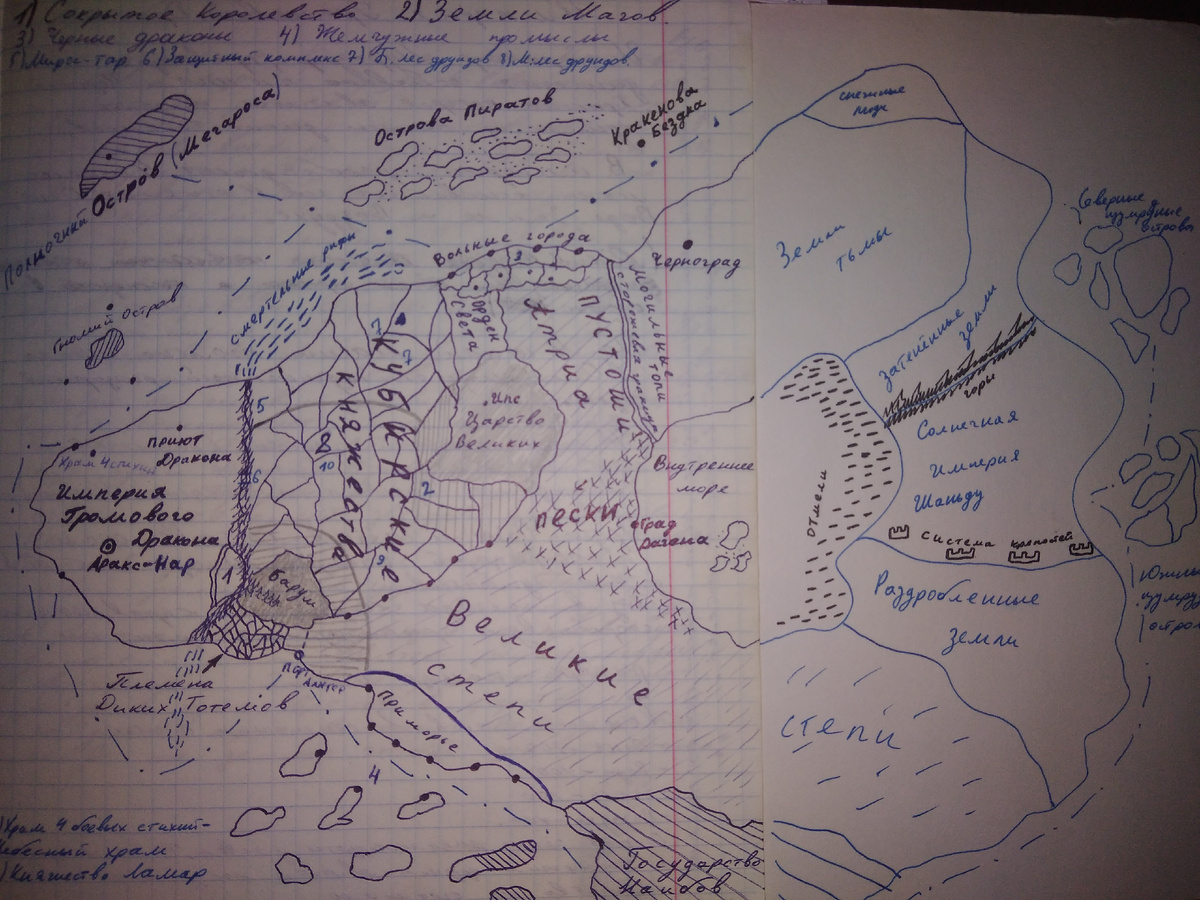 1) Сокрытое Королевство 2) Земли Магов
3) Черные драконы 4) Жемчужные промыслы
5) Мирос-тар 6) Защитный комплекс 7) Б. лес друидов 8) М. лес друидов
Полночный Остров (Мегароса)
Острова Пиратов
Кракенова
Бездна
снежные
люди
Северные
изумрудные
острова
Земли
тьмы
Черноград
Вольные города
3
смертельные рифы
Гномий Остров
Орден
Света
Атриа
Пустоши
Могильные топи
сторожевая граница
Затенённые земли
горы
7
7
Кубераские
княжества
Ипс
Царство
Великих
5
Приют
Дракона
Храм 4 стихий
6
Империя
Громового
Дракона
Аракс-Нар
2
10
2
9
1
Барум
пески
Внутреннее
море
Град
Дагена
отмели
Солнечная
Империя
Шаньду
Система крепостей
Раздробленные
Земли
Южные
Великие
степи
степи
Племена
Диких Тотемов
Приморье
4
Храм 4 боевых стихий-
Небесный храм
) Княжество Ламар
Государство
Наибов